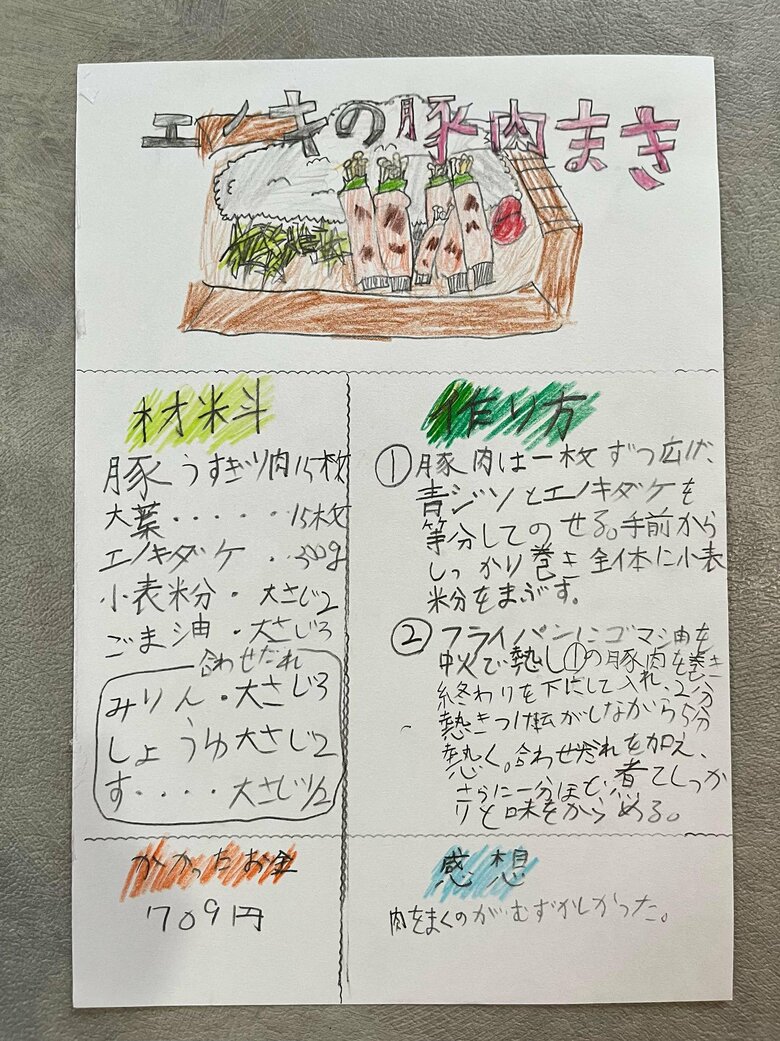 エノキの豚肉まき
材料
豚うすぎり肉15枚
大葉・・・・・15枚
エノキダケ・・300g
小麦粉・大さじ2
ごま油・大さじ3
合わせだれ
みりん・大さじ3
しょうゆ大さじ2
す・・・・大さじ1/2
作り方
①豚肉は一枚ずつ広げ、
青ジソとエノキダケを
等分してのせる。手前から
しっかり巻き全体に小麦
粉をまぶす。
②フライパンにゴマ油を
中火で熱し①の豚肉を巻き
終わりを下にして入れ、2分
熱きつけ転がしながら5分
熱く。合わせだれを加え、
さらに一分ほど、煮てしっか
りと味をからめる。
かかったお金
709円
感想
肉をまくのがむずかしかった。